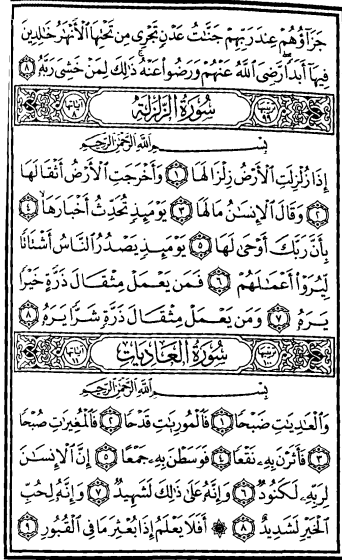 جَزَآؤُهُمْ عِندَ رَبِّهِمْ جَنَّٰتُ عَدْنٍ تَجْرِي مِن تَحْتِهَا ٱلْأَنْهَٰرُ خَٰلِدِينَ
فِيهَآ أَبَدًا رَّضِيَ ٱللَّهُ عَنْهُمْ وَرَضُوا۟ عَنْهُ ذَٰلِكَ لِمَنْ خَشِيَ رَبَّهُۥ ٨
ترتيبها ٩٩ سُورَةُ الزَّلْزَلَةِ آياتها ٨
بِسْمِ ٱللَّهِ ٱلرَّحْمَٰنِ ٱلرَّحِيمِ
إِذَا زُلْزِلَتِ ٱلْأَرْضُ زِلْزَالَهَا ١ وَأَخْرَجَتِ ٱلْأَرْضُ أَثْقَالَهَا
٢ وَقَالَ ٱلْإِنسَٰنُ مَا لَهَا ٣ يَوْمَئِذٍ تُحَدِّثُ أَخْبَارَهَا ٤
بِأَنَّ رَبَّكَ أَوْحَىٰ لَهَا ٥ يَوْمَئِذٍ يَصْدُرُ ٱلنَّاسُ أَشْتَاتًا
لِّيُرَوْا۟ أَعْمَٰلَهُمْ ٦ فَمَن يَعْمَلْ مِثْقَالَ ذَرَّةٍ خَيْرًا
يَرَهُۥ ٧ وَمَن يَعْمَلْ مِثْقَالَ ذَرَّةٍ شَرًّا يَرَهُۥ ٨
ترتيبها ١٠٠ سُورَةُ الْعَادِيَاتِ آياتها ١١
بِسْمِ ٱللَّهِ ٱلرَّحْمَٰنِ ٱلرَّحِيمِ
وَٱلْعَٰدِيَٰتِ ضَبْحًا ١ فَٱلْمُورِيَٰتِ قَدْحًا ٢ فَٱلْمُغِيرَٰتِ صُبْحًا
٣ فَأَثَرْنَ بِهِۦ نَقْعًا ٤ فَوَسَطْنَ بِهِۦ جَمْعًا ٥ إِنَّ ٱلْإِنسَٰنَ
لِرَبِّهِۦ لَكَنُودٌ ٦ وَإِنَّهُۥ عَلَىٰ ذَٰلِكَ لَشَهِيدٌ ٧ وَإِنَّهُۥ لِحُبِّ
ٱلْخَيْرِ لَشَدِيدٌ ٨ ۞ أَفَلَا يَعْلَمُ إِذَا بُعْثِرَ مَا فِي ٱلْقُبُورِ ٩